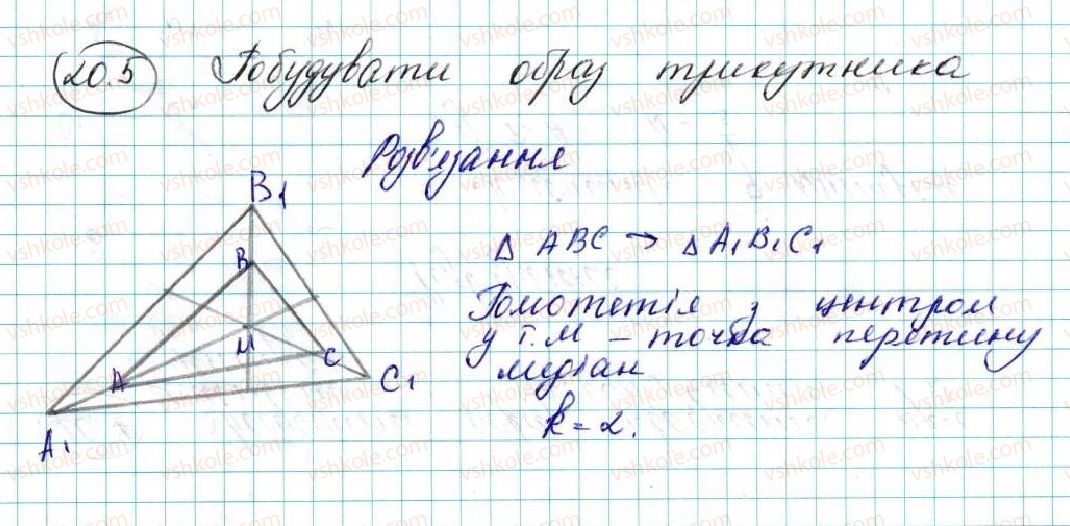 20.5 Побудувати образ трикутника
Розв'язання
B1
B
M
A
C
C1
A1
Δ ABC → Δ A1B1C1
Гомотетія з центром
у т. М – точка перетину
медіан
k = 2.